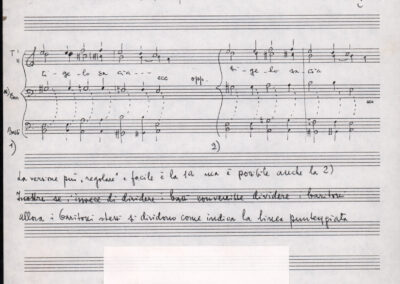 T.
ti - ge - lo sa cia - - - ecc opp. ti - ge - lo sa - cia
Bar.
ecc
Bassi
1) 2)
La versione più "regolare" e facile è la 1a ma è possibile anche la 2)
Inoltre se invece di dividere i bassi conveniße dividere i baritoni
allora i baritoni stessi si dividono come indica la linea punteggiata